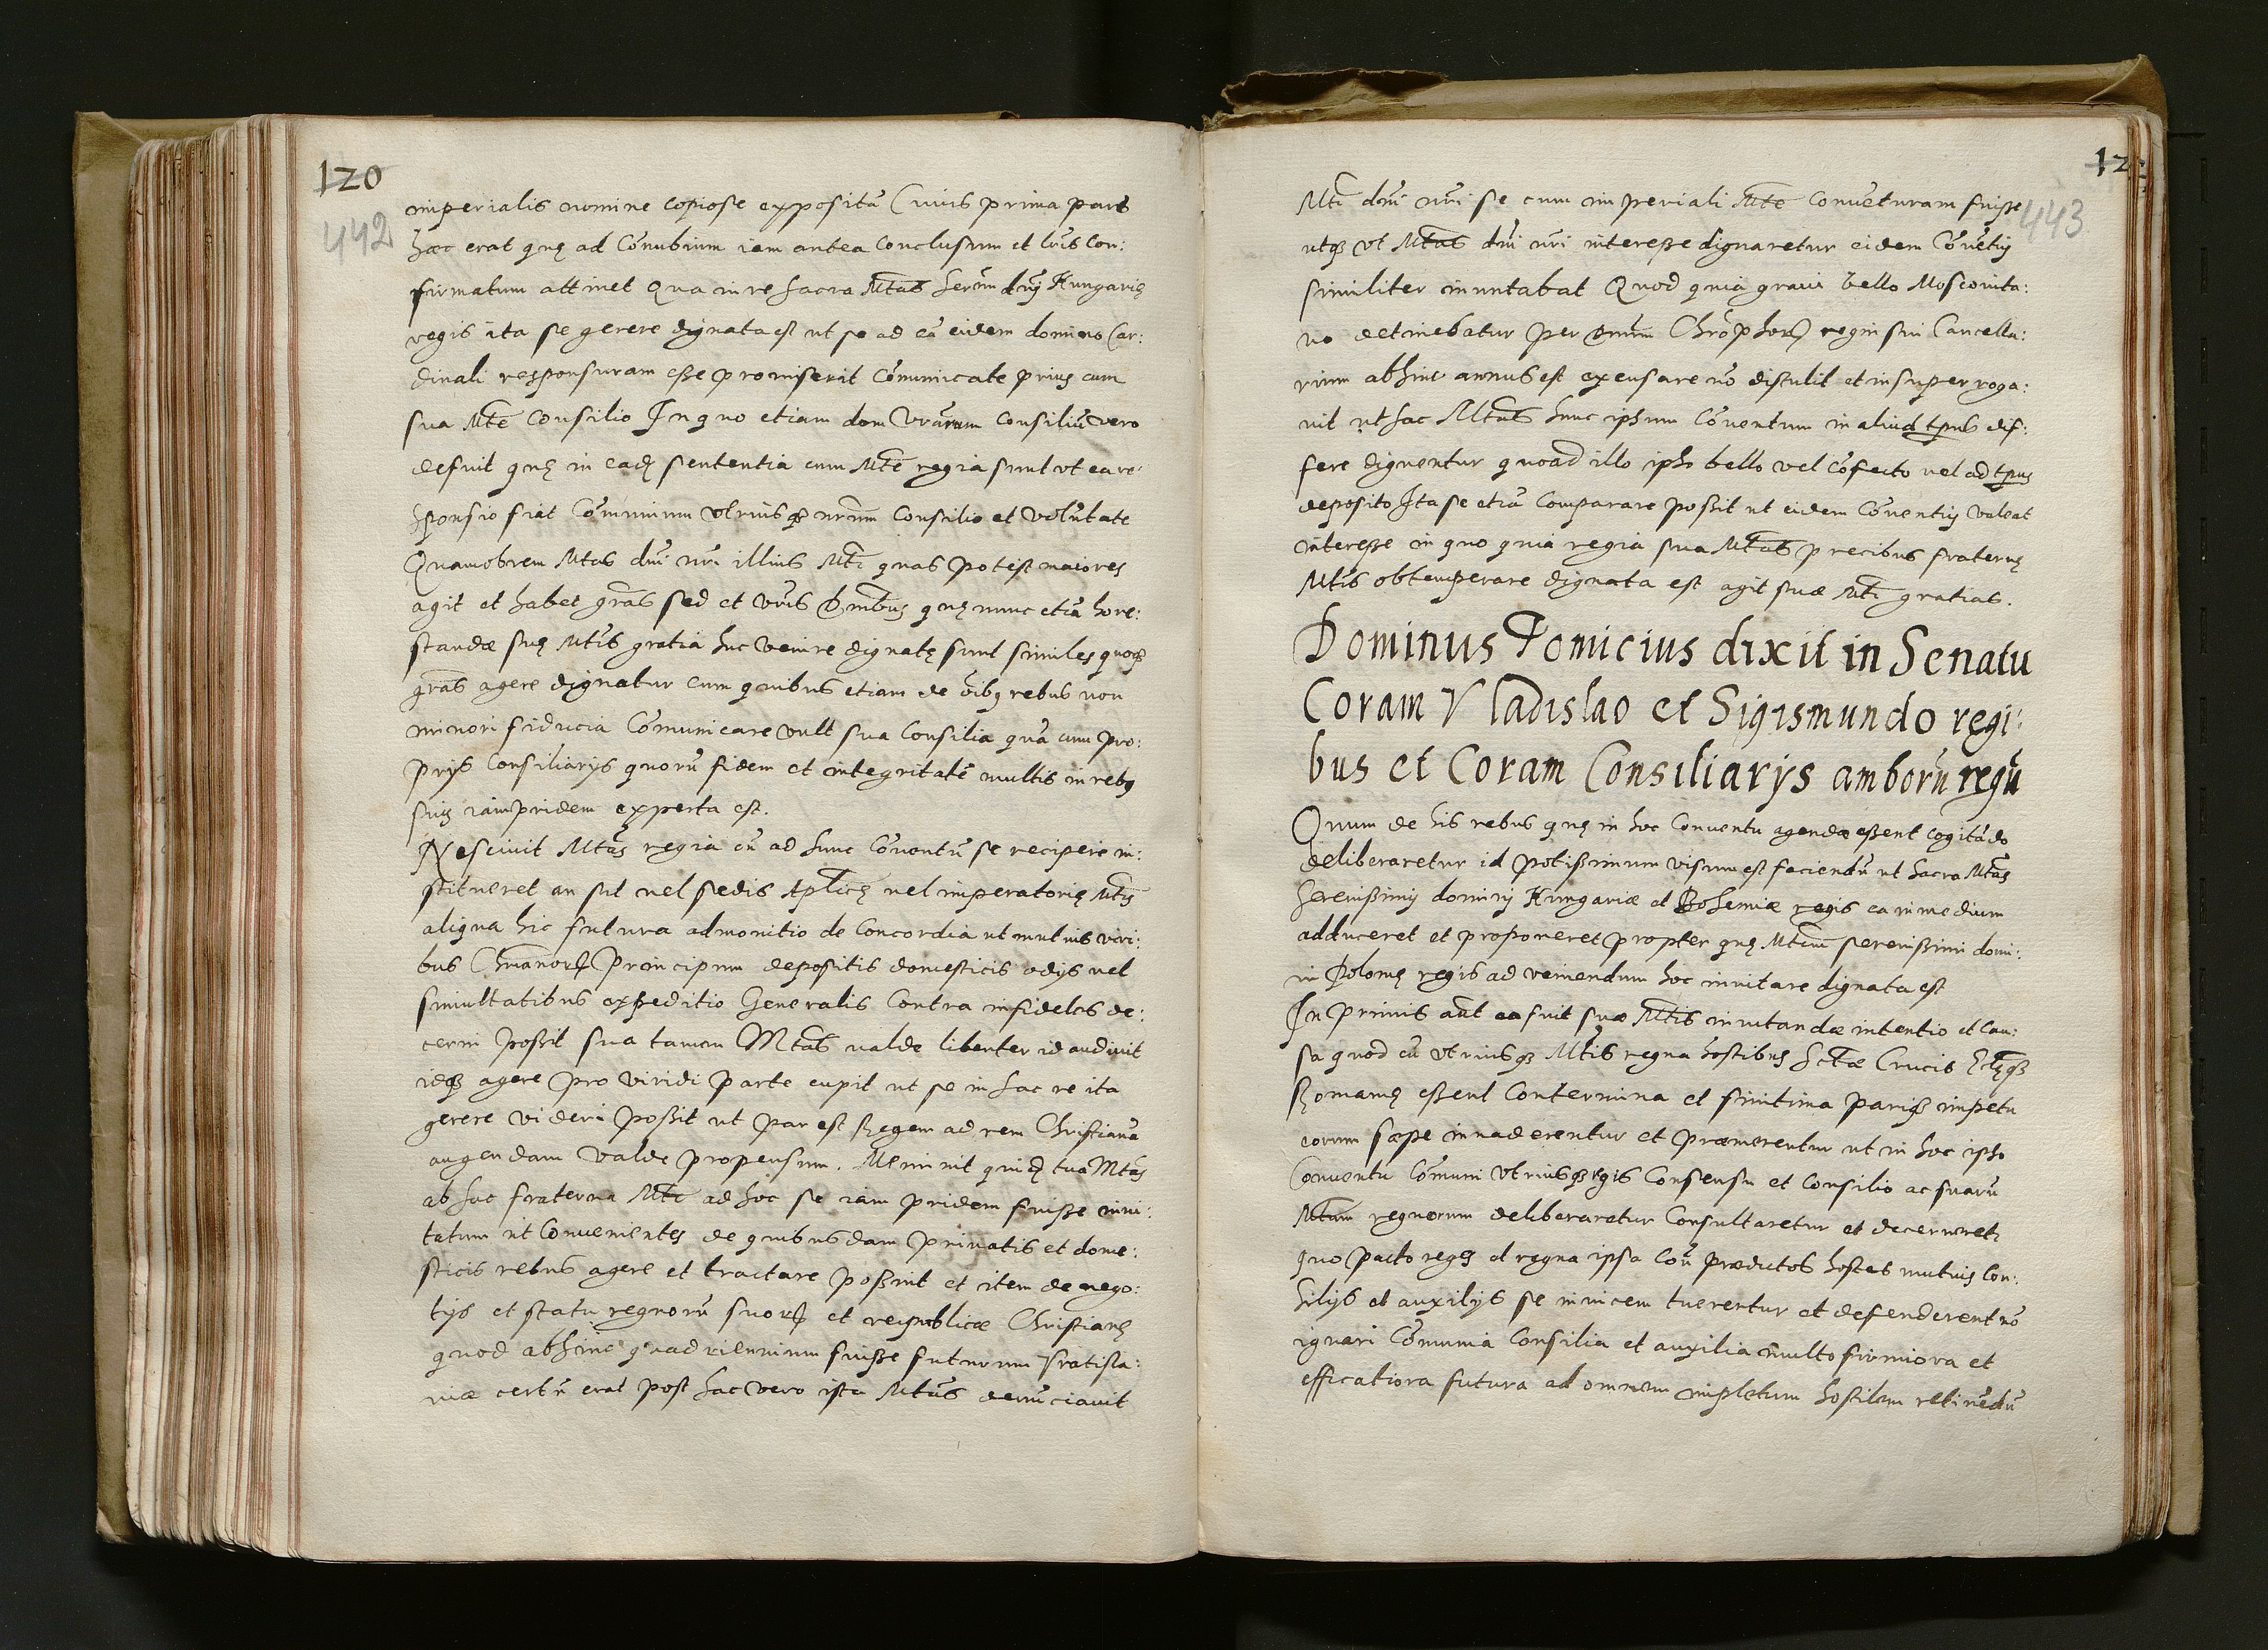 120
442
imperialis nomine copiose expositũ Cuius prima pars
hæc erat quę ad Cõnubium iam antea conclusum et lr̃is con:
firmatum attinet Qua in re sacra Mtas serm̃i dñi Hungarię
regis ita se gerere dignata est ut se ad eã eidem domino Car:
dinali responsuram esse promiserit cõmunicate prius cum
sua Mte Consilio In quo etiam dom vr̃arum consiliũ vero
defuit quę in eadẽ sententia cum Mte regia sunt ut ea re:
sponsio fiat Cõmmuni utriusqз nr̃um Consilio et volũtate
Quamobrem Mtas dñi nr̃i illius Mti quas potest maiores
agit et habet grãs sed et vr̃is Dnibus quę nunc etiã hone:
standæ suę Mtis gratia huc venire dignatę sunt similes quoqз
grãs agere dignatur cum quibus etiam de oĩbus rebus non
minori fiducia Cõmunicare vult sua Consilia quã cum pro:
prijs Consiliarijs quorũ fidem et integritatẽ multis in rebus
suis iampridem experta est.
Nescivit Mtas regia cũ ad hunc Cõventũ se recipere in:
stitueret an sit vel sedis Aplicę vel imperatorię Mtis
aliqua hic futura admonitio de Concordia ut mutuis viri:
bus Chrianorꝝ Principum depositis domesticis odijs vel
simultatibus expeditio Generalis Contra infideles de:
cerni possit sua tamen Mtas valde libenter id audivit
idqз agere pro viridi parte cupit ut se in hac re ita
gerere videri possit ut par est Regem ad rem Christianã
augendam valde propensum. Meminit quidẽ tua Mtas
ab hac fraterna Mte ad hoc se iam pridem fuisse invi:
tatum ut Convenientes de quibusdam privatis et dome:
sticis rebus agere et tractare possint et item de nego:
tijs et statu regnorũ suorꝝ et reipublicæ Christianę
quod abhinc quadriennium fuisse futurum Vratisla:
viæ certũ erat post hac vero ista Mtas denũciavit
12
443
Mti dñi nr̃i se cum imperiali Mte conveturam fuisse
utqз ut Mtas dñi nr̃i interesse dignaretur eidem Cõvetui
similiter invitabat Quod quia gravi bello Moscovita:
no detinebatur per Dnum Chr̃ophorꝝ regni sui Cancella:
rium abhinc annus est excusare nõ distulit et insuper roga:
vit ut hac Mtas hunc ipsum Cõventum in aliud tpus dif:
fere dignentur quoad illo ipso bello vel cõfecto vel ad tpus
deposito Ita se etiã Comparare possit ut eidem Cõventui valeat
interesse in quo quia regia sua Mtas precibus fraternę
Mtis obtemperare dignata est agit suæ Mti gratias.
Dominus Tomicius dixit in Senatu
Coram Vladislao et Sigismundo regi:
bus et Coram Consiliarijs amborũ regũ
Quum de his rebus quę in hoc Conventu agendæ essent cogitãdo
deliberaretur id potissimum visum est faciendũ ut sacra Mtas
Serenissimi domini Hungariæ et Bohemiæ regis ea in medium
adduceret et proponeret propter quę Mtem serenissimi domi:
ni Polonię regis ad veniendum hoc invitare dignata est
In primis aũt ea fuit suæ Mtis invitandæ intentio et Cau:
sa quod cũ utriusqз Mtis regna hostibus Sctæ Crucis Ecclęqз
Romanę essent Contermina et finitima pariqз impetu
eorum sæpe invaderentur et præmerentur ut in hoc ipso
Conventu Cõmuni utriusqз regis Consensu et Consilio ac suarũ
Mtum regnorum deliberaretur Consultaretur et decerneret
Quo pacto reges et regna ipsa Con̄ prædictos hostes mutuis Con:
silijs et auxilijs se invicem tuerentur et defenderent nõ
ignari Cõmunia Consilia et auxilia multo firmiora et
efficatiora futura ad omnem impletum hostilem retinẽdũ